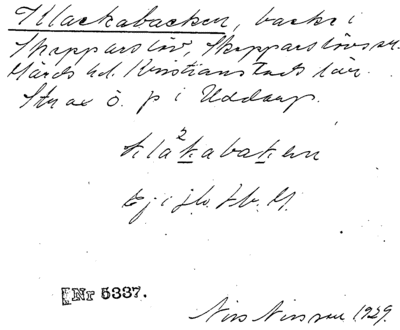 Klackabacken, backe i
Skepparslöv, Skepparslövs sn.
Gärds hd. Kristianstads län.
Strax ö. p i Uddarp.
klakabaken
Ej i jb. Hb. G.
[Nr 5337.
Nils Nilsson 1929.